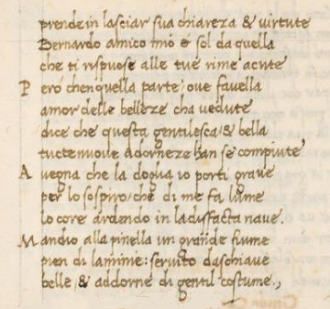 prende in lasciar sua chiareza & virtute
Bernardo amico mio é sol da quella
che ti rispuose alle tue rime acute
Peró chenquella parte, oue fauella
amor delle belleze cha uedute
dice che questa gentilesca, & bella
tucte nuoue adorneze han se compiute
Auegna che la doglia io porti graue
per lo sospiro, che di me fa lume
lo core ardendo in la disfacta naue.
Mandio alla pinella un grande fiume
pien di lamme: seruito daschiaue
belle, & addorne di gentil costume.,